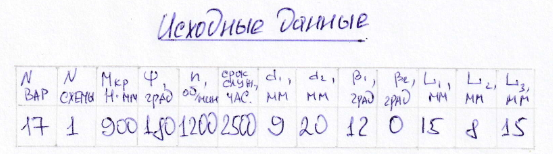 Исходные данные
N ВАР N СХЕМЫ Мкр Н·мм φ, ГРАД n, об/мин СРОК СЛУЖ, ЧАС. d1, мм d2, мм β1, ГРАД β2, ГРАД L1, мм L2, мм L3, мм
17 1 900 180 1200 2500 9 20 12 0 15 8 15